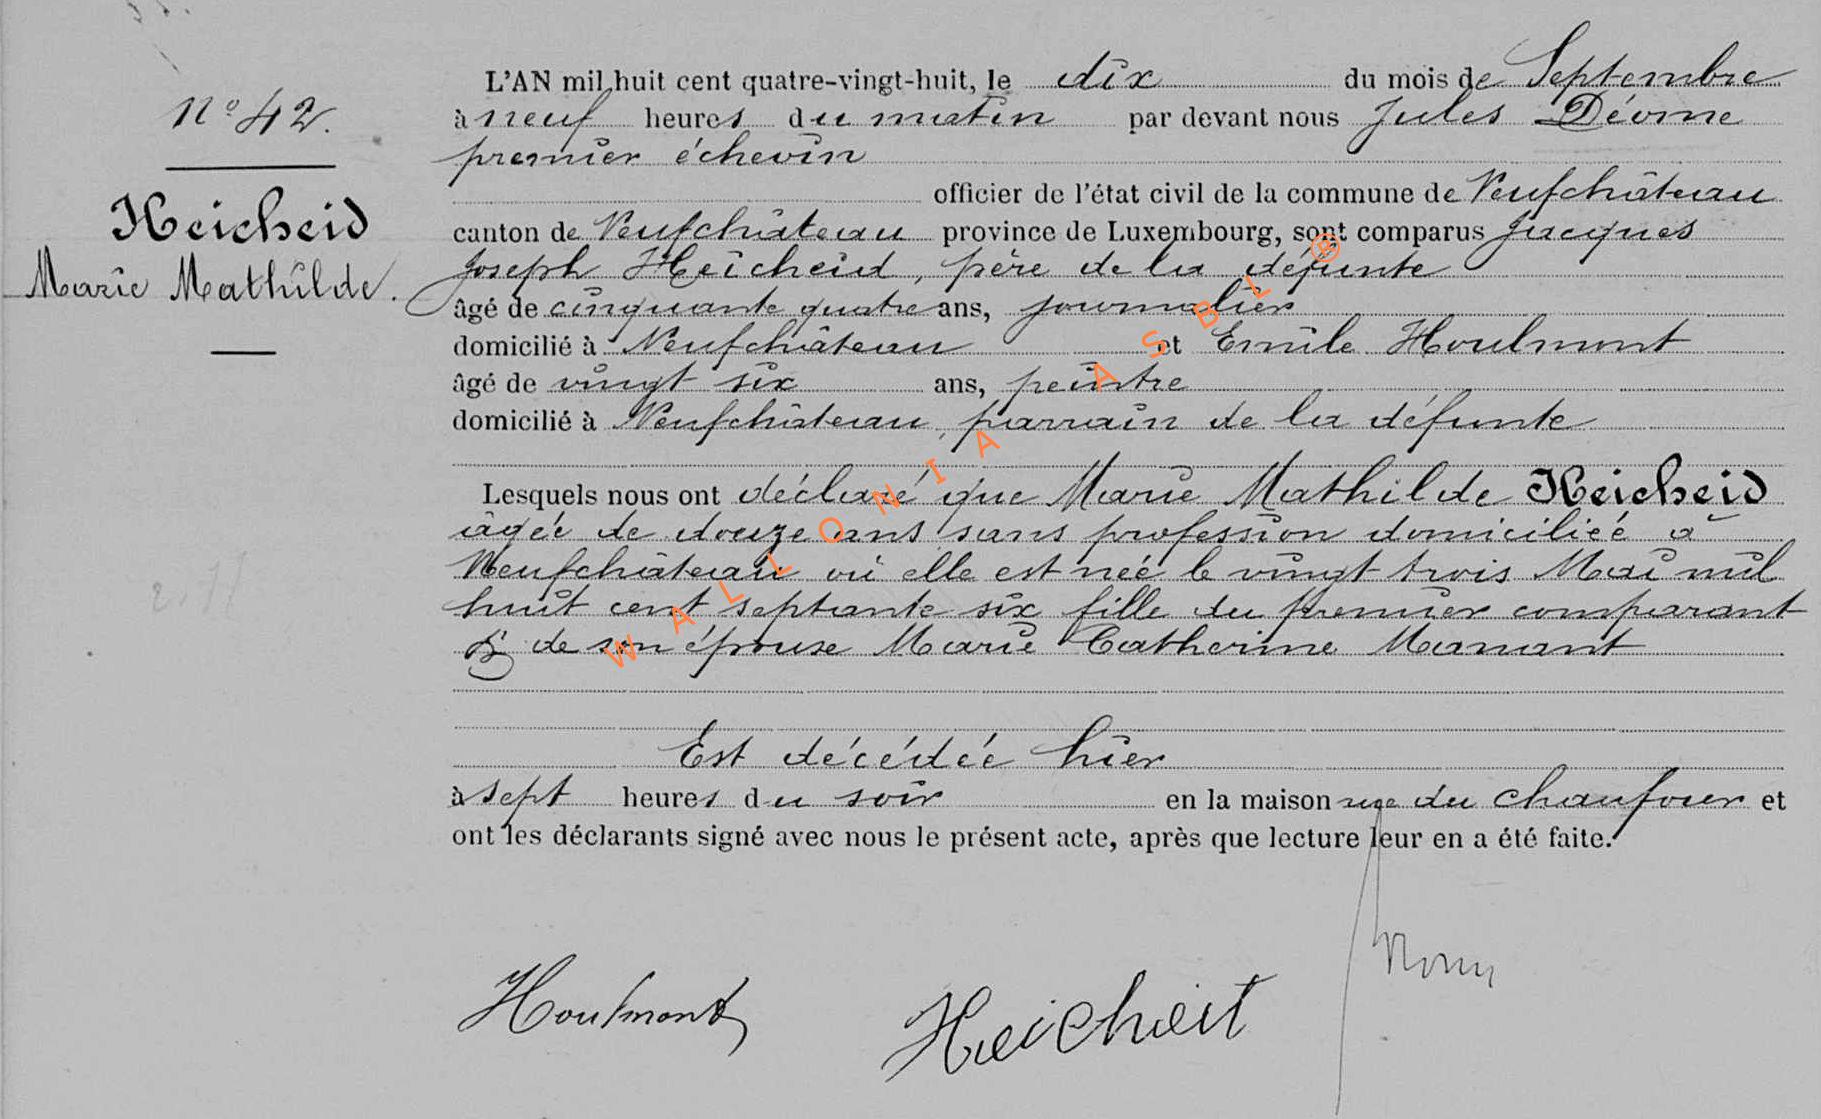 N° 42.
Heicheid
Marie Mathilde.
L'AN mil huit cent quatre-vingt-huit, le dix du mois de Septembre
à neuf heures du matin par devant nous Jules Déome
premier échevin
officier de l'état civil de la commune de Neufchâteau
canton de Neufchâteau province de Luxembourg, sont comparus Jacques
Joseph Heicheid, père de la défunte
âgé de cinquante quatre ans, journalier
domicilié à Neufchâteau et Emile Houlmont
âgé de vingt six ans, peintre
domicilié à Neufchâteau, parrain de la défunte
Lesquels nous ont déclaré que Marie Mathilde Heicheid
âgée de douze ans sans profession domiciliée à
Neufchâteau où elle est née le vingt trois Mai mil
huit cent septante six fille du premier comparant
& de son épouse Marie Catherine Manant
Est décédée hier
à sept heures du soir en la maison rue du chaufour et
ont les déclarants signé avec nous le présent acte, après que lecture leur en a été faite.
Houlmont
Heicheit
WALLONIA ASBL ®